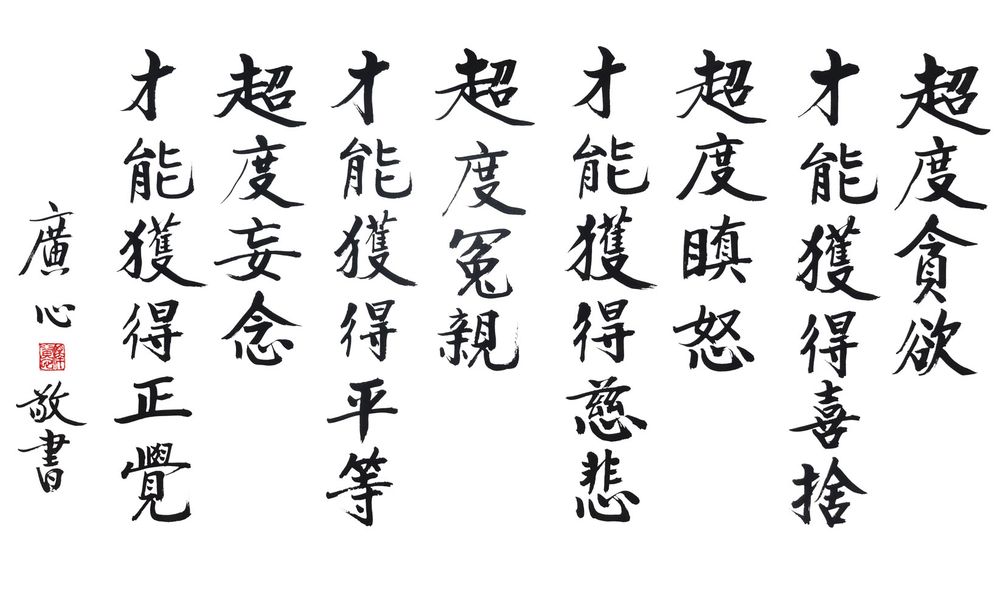 超度貪欲
才能獲得喜捨
超度瞋怒
才能獲得慈悲
超度冤親
才能獲得平等
超度妄念
才能獲得正覺
廣心敬書